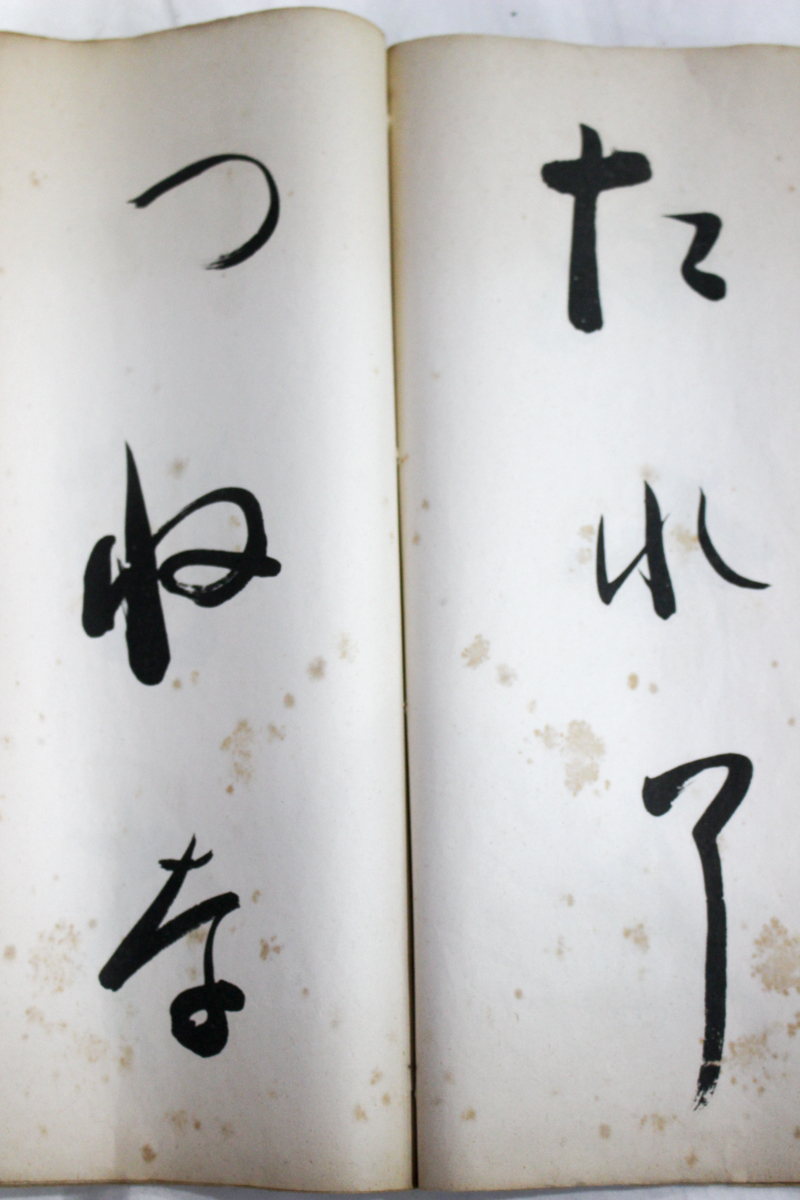 たれそ
つねな